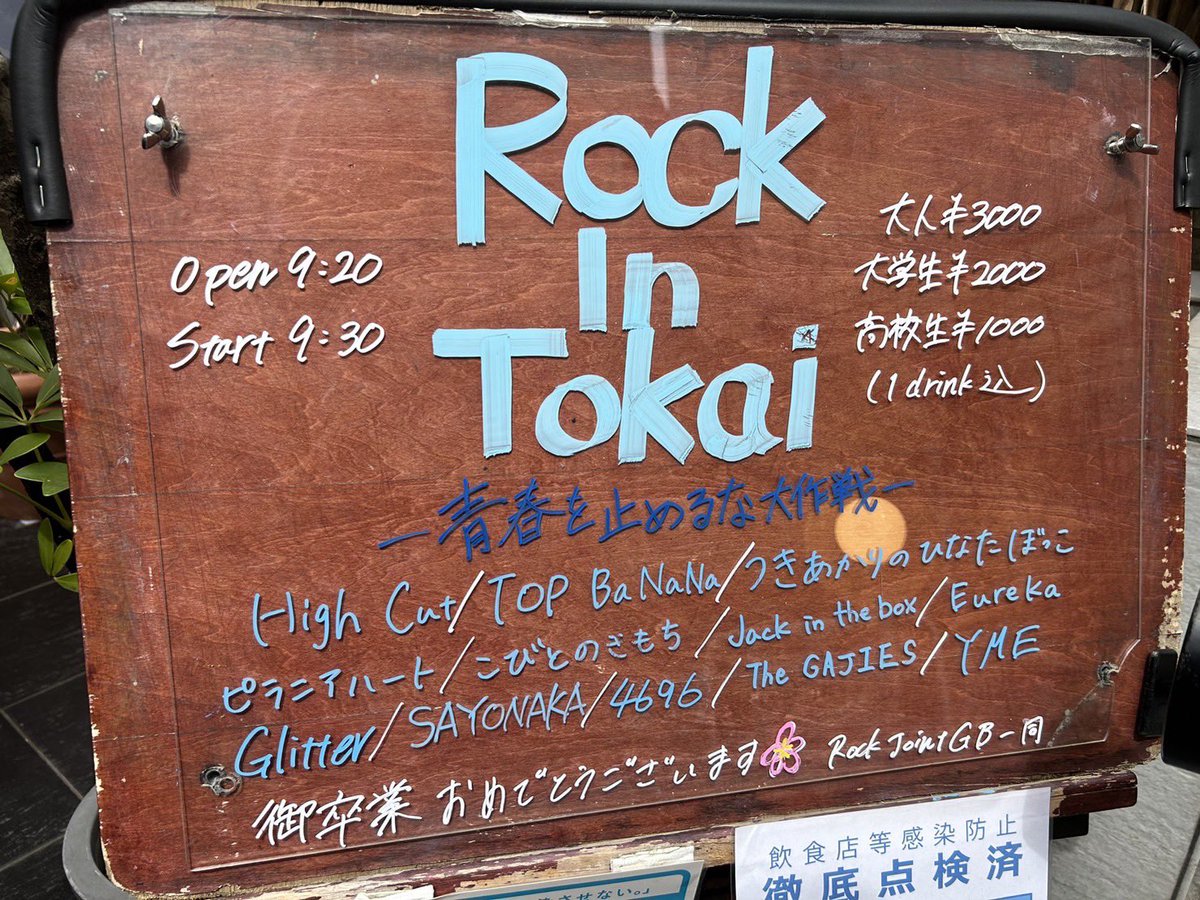 Rock
In
Tokai
Open 9:20
Start 9:30
大人¥3000
大学生¥2000
高校生¥1000
(1 drink 込)
ー青春を止めるな大作戦ー
High Cut/TOP BaNaNa/つきあかりのひなたぼっこ
ピラニアハート/こびとのきもち/Jack in the box/Eureka
Glitter/SAYONAKA/4696/The GAJIES/YME
御卒業 おめでとうございます Rock Joint GB一同
飲食店等感染防止
徹底点検済
させない。」